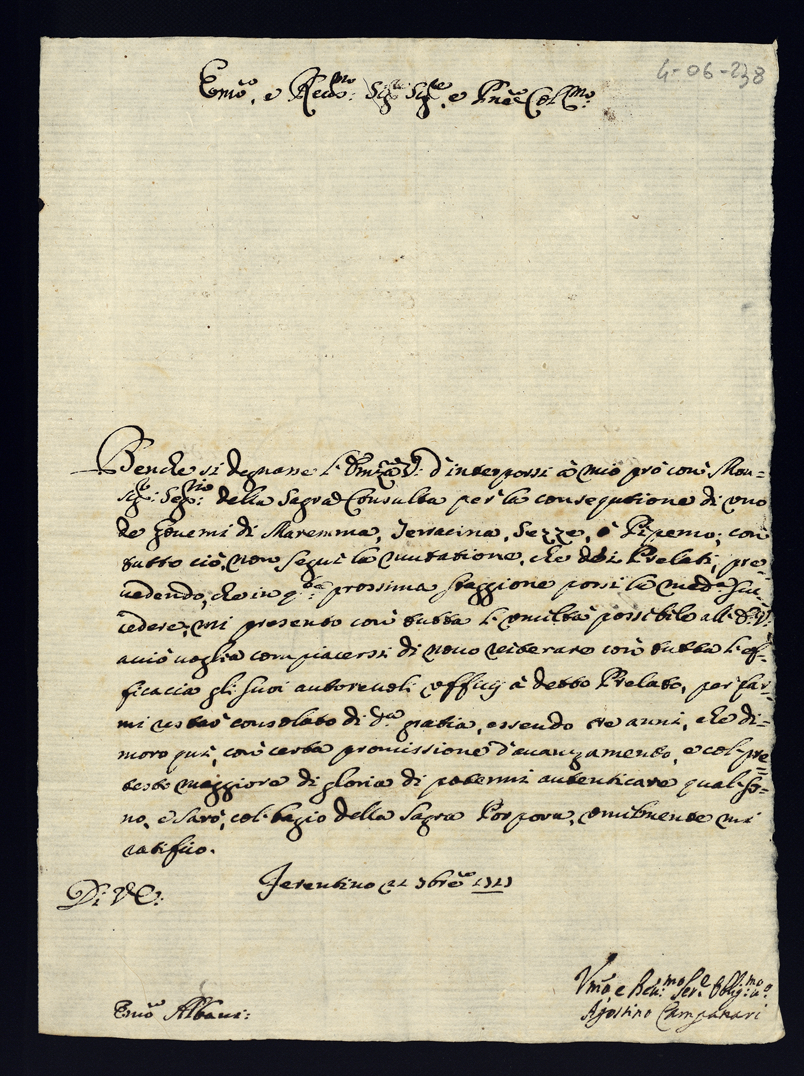 4-06-238
Emo. e Reumo: Sigre Sigre, e Pne Col.mo:
Benche si degnasse l'Emza V: d'interporsi à mio prò con Mon=
sigr: Segrio: della Sagra Consulta per la consequtione di uno
de Governi di Maremma, Terracina, Sezze, ò Piperno; con
tutto ciò, non seguì la mutatione, che de i Prelati; pre=
vedendo, che in qta prossima staggione possi la meda suc=
cedere, mi presento con tutta l'umiltà possibile all'E: V:
acciò voglia compiacersi di novo reiterare con tutta l'ef=
ficacia gli suoi autorevoli officij à detto Prelato, per far=
mi restar consolato di da gratia, essendo tre anni, che di=
moro quì, con certa promissione d'avanzamento, e col pre=
testo maggiore di gloria di potermi autenticare qual so=
no, e sarò, col bagio della Sagra Porpora, umilmente mi
ratifico.
Ferentino 21 9bre 1721
Di V. E:
Vmo, e Reumo Sere Obligmo
Agostino Campanari
Emo Albani: